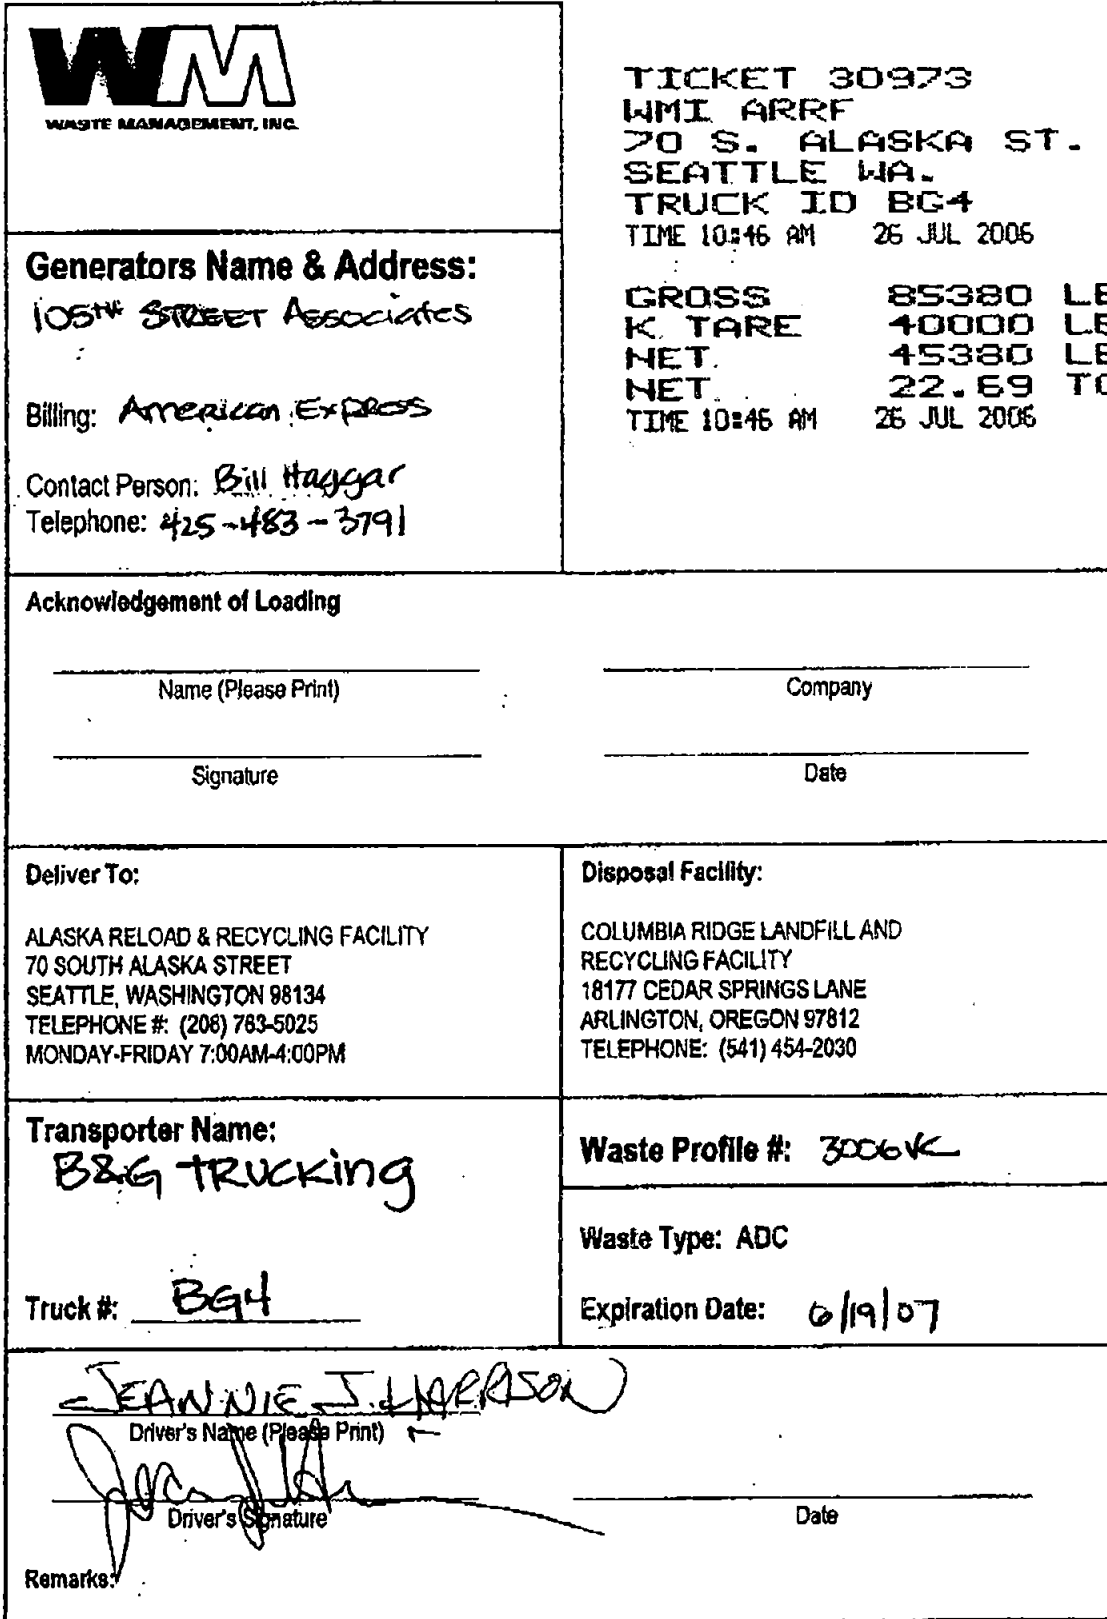 WM
WASTE MANAGEMENT, INC.
TICKET 30973
WMI ARRF
70 S. ALASKA ST.
SEATTLE WA.
TRUCK ID BG4
TIME 10:46 AM 26 JUL 2006
GROSS 85380 LB
K. TARE 40000 LB
NET 45380 LB
NET 22.69 TO
TIME 10:46 AM 26 JUL 2006
Generators Name & Address:
105TH STREET Associates
Billing: American Express
Contact Person: Bill Haggar
Telephone: 425-483-3791
Acknowledgement of Loading
Name (Please Print) Company
Signature Date
Deliver To:
ALASKA RELOAD & RECYCLING FACILITY
70 SOUTH ALASKA STREET
SEATTLE, WASHINGTON 98134
TELEPHONE #: (206) 763-5025
MONDAY-FRIDAY 7:00AM-4:00PM
Disposal Facility:
COLUMBIA RIDGE LANDFILL AND
RECYCLING FACILITY
18177 CEDAR SPRINGS LANE
ARLINGTON, OREGON 97812
TELEPHONE: (541) 454-2030
Transporter Name:
B&G TRUCKing
Truck #: BG4
Waste Profile #: 3006VC
Waste Type: ADC
Expiration Date: 6/19/07
JEANNIE J. HARRISON
Driver's Name (Please Print)
Driver's Signature Date
Remarks: